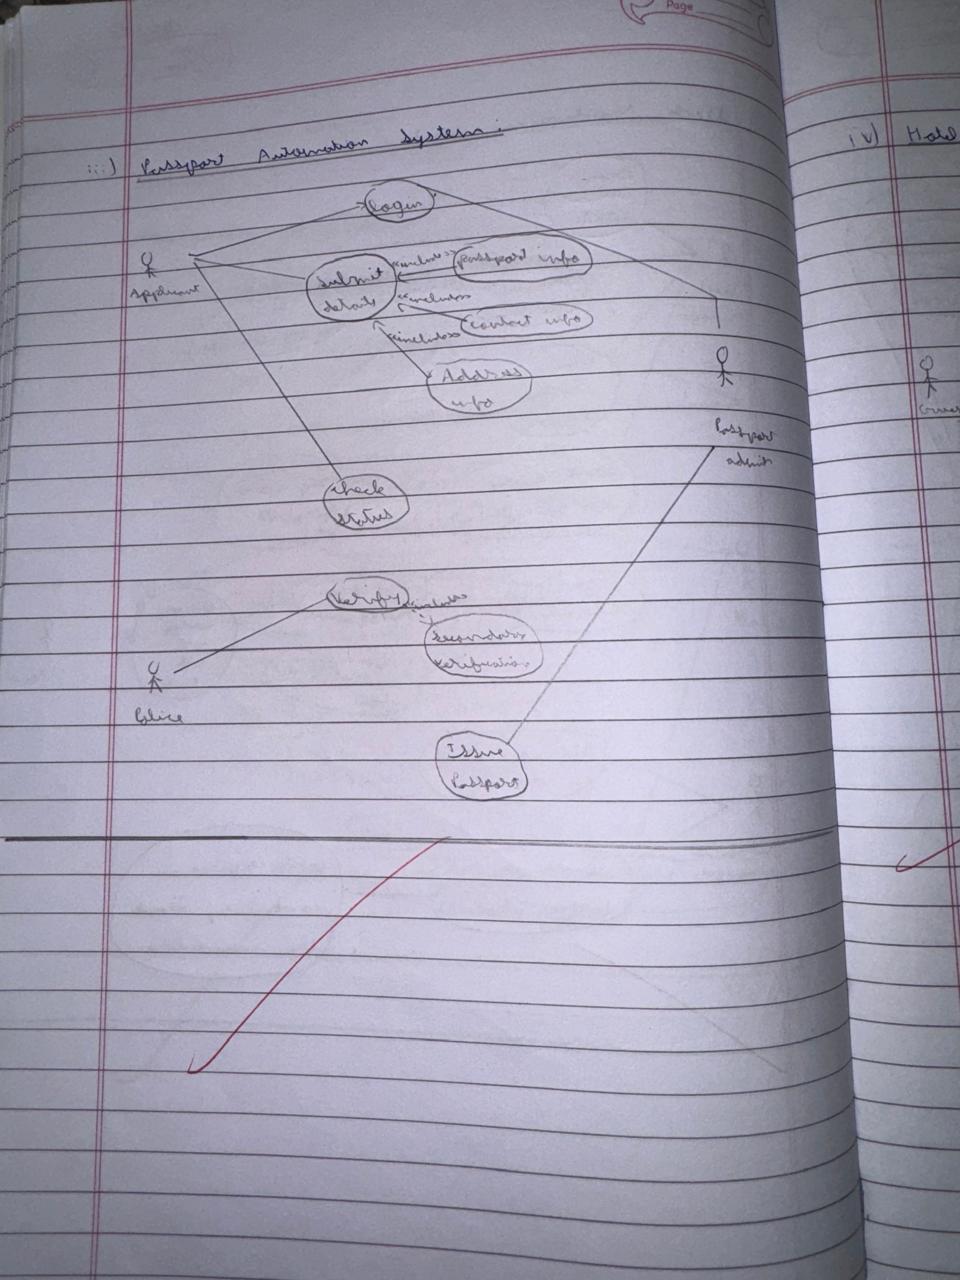 Page
iii) Passport Automation System:
iv) Hotel
Login
Applicant
Submit
details
<<includes>>
passport info
<<includes>>
contact info
<<includes>>
Address
info
Passport
admin
check
status
Verify
<<includes>>
secondary
verification
Police
Issue
Passport